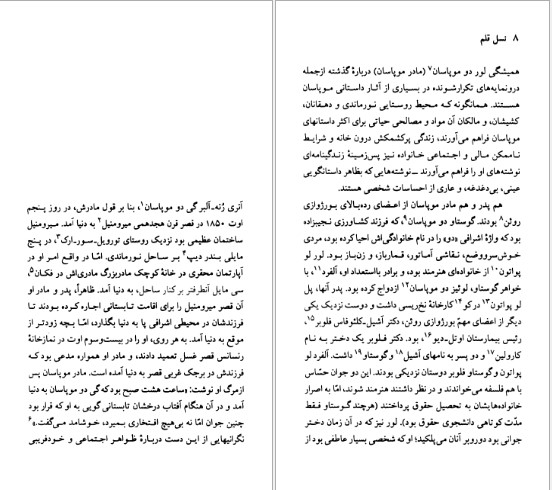 آنری رُنه‌ـ‌آلبر گی دو موپاسان۱، بنا بر قول مادرش، در روز پنجم
اوت ۱۸۵۰ در قصر قرن هجدهمی میرومنیل۲ به دنیا آمد. میرومنیل
ساختمان عظیمی بود نزدیک روستای تورویل‌ـ‌سورـ‌ارک۳، در پنج
مایلی بندر دیپ۴ بر ساحل نورماندی. امّا در واقع امر او در
آپارتمان محقری در خانهٔ کوچک مادربزرگ مادری‌اش در فکان۵،
سی مایل آنطرفتر بر کنار ساحل، به دنیا آمد. ظاهراً، پدر و مادر او
آن قصر میرومنیل را برای اقامت تابستانی اجاره کرده بودند تا
فرزندشان در محیطی اشرافی پا به دنیا بگذارد، امّا بچه زودتر از
موقع به دنیا آمد. به هر روی، او را در بیست‌وسوم اوت در نمازخانهٔ
رنسانس قصر غسل تعمید دادند، و مادر او همواره مدعی بود که
فرزندش در برجک غربی قصر به دنیا آمده است. مادر موپاسان پس
ازمرگ او نوشت: «ساعت هشت صبح بود که گی دو موپاسان به دنیا
آمد و در آن هنگام آفتاب درخشان تابستانی گویی به او که قرار بود
چنین جوان امّا نه بی‌هیچ افتخاری بمیرد، خوشامد می‌گفت.»۶
نگرانیهایی از این دست دربارهٔ ظواهر اجتماعی و خودفریبی
۸ نسل قلم
همیشگی لور دو موپاسان۷ (مادر موپاسان) دربارهٔ گذشته ازجمله
درونمایه‌های تکرارشونده در بسیاری از آثار داستانی موپاسان
هستند. همانگونه که محیط روستایی نورماندی و دهقانان،
کشیشان، و مالکان آن مواد و مصالحی حیاتی برای اکثر داستانهای
موپاسان فراهم می‌آورند، زندگی پرکشمکش درون خانه و شرایط
ناممکن مالی و اجتماعی خانواده نیز پس‌زمینهٔ زندگینامه‌ای
نوشته‌های او را فراهم می‌آورند ــ نوشته‌هایی که بظاهر داستانگویی
عینی، بی‌دغدغه، و عاری از احساسات شخصی هستند.
هم پدر و هم مادر موپاسان از اعضای رده‌بالای بورژوازی
روئن۸ بودند. گوستاو دو موپاسان۹، که فرزند کشاورزی نجیبزاده
بود که واژهٔ اشرافی «دو» را در نام خانوادگی‌اش احیا کرده بود، مردی
خوش‌سرووضع، نقاشی آماتور، قمارباز، و زن‌باز بود. لور لو
پواتون۱۰ از خانواده‌ای هنرمند بود، و برادر بااستعداد او، آلفرد۱۱، با
خواهر گوستاو، لوئیز دو موپاسان۱۲ ازدواج کرده بود. پدر آنها، پل
لو پواتون۱۳ در کو۱۴ کارخانهٔ نخ‌ریسی داشت و دوست نزدیک یکی
دیگر از اعضای مهمّ بورژوازی روئن، دکتر آشیل‌ـ‌کلئوفاس فلوبر۱۵،
رئیس بیمارستان اوتل‌ـ‌دیو۱۶، بود. دکتر فلوبر یک دختر به نام
کارولین۱۷ و دو پسر به نامهای آشیل۱۸ و گوستاو۱۹ داشت. آلفرد لو
پواتون و گوستاو فلوبر دوستان نزدیکی بودند. این دو جوان حسّاس
با هم فلسفه می‌خواندند و در نظر داشتند هنرمند شوند، امّا به اصرار
خانواده‌هایشان به تحصیل حقوق پرداختند (هرچند گوستاو فقط
مدّت کوتاهی دانشجوی حقوق بود). لور نیز که در آن زمان دختر
جوانی بود دوروبر آنان می‌پلکید؛ او که شخصی بسیار عاطفی بود از